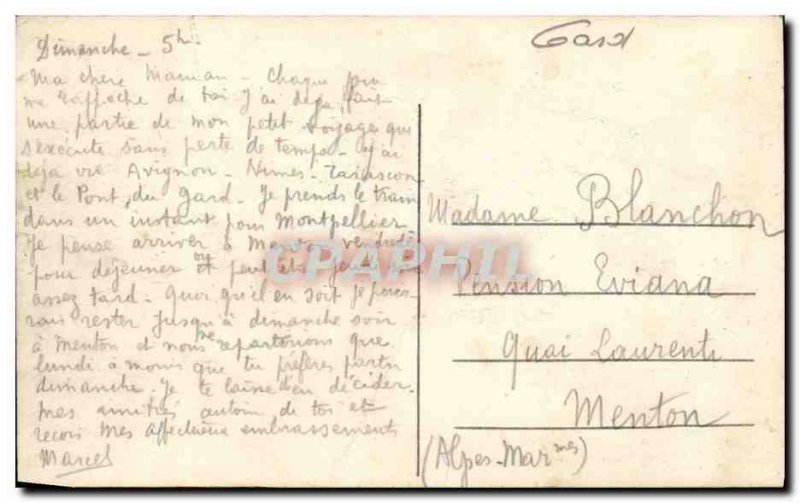 Gard
Dimanche - 5h.
Ma chère Maman - Chaque jour
me rapproche de toi J'ai déjà fait
une partie de mon petit voyage qui
s'exécute sans perte de temps - J'ai
déjà vu Avignon - Nimes - Tarascon
et le Pont du Gard - Je prends le train
dans un instant pour Montpellier
Je pense arriver à Menton vendredi
pour déjeuner ou peut être jeudi
assez tard - Quoi qu'il en soit je pour-
rais rester jusqu'à dimanche soir
à Menton et nous ne repartirions que
lundi à moins que tu préfères partir
dimanche. Je te laisse d'en décider.
Mes amitiés autour de toi et
reçois mes affectueux embrassements
Marcel
Madame Blanchon
Pension Eviana
Quai Laurenti
Menton
(Alpes-Marmes)
CPAPHIL